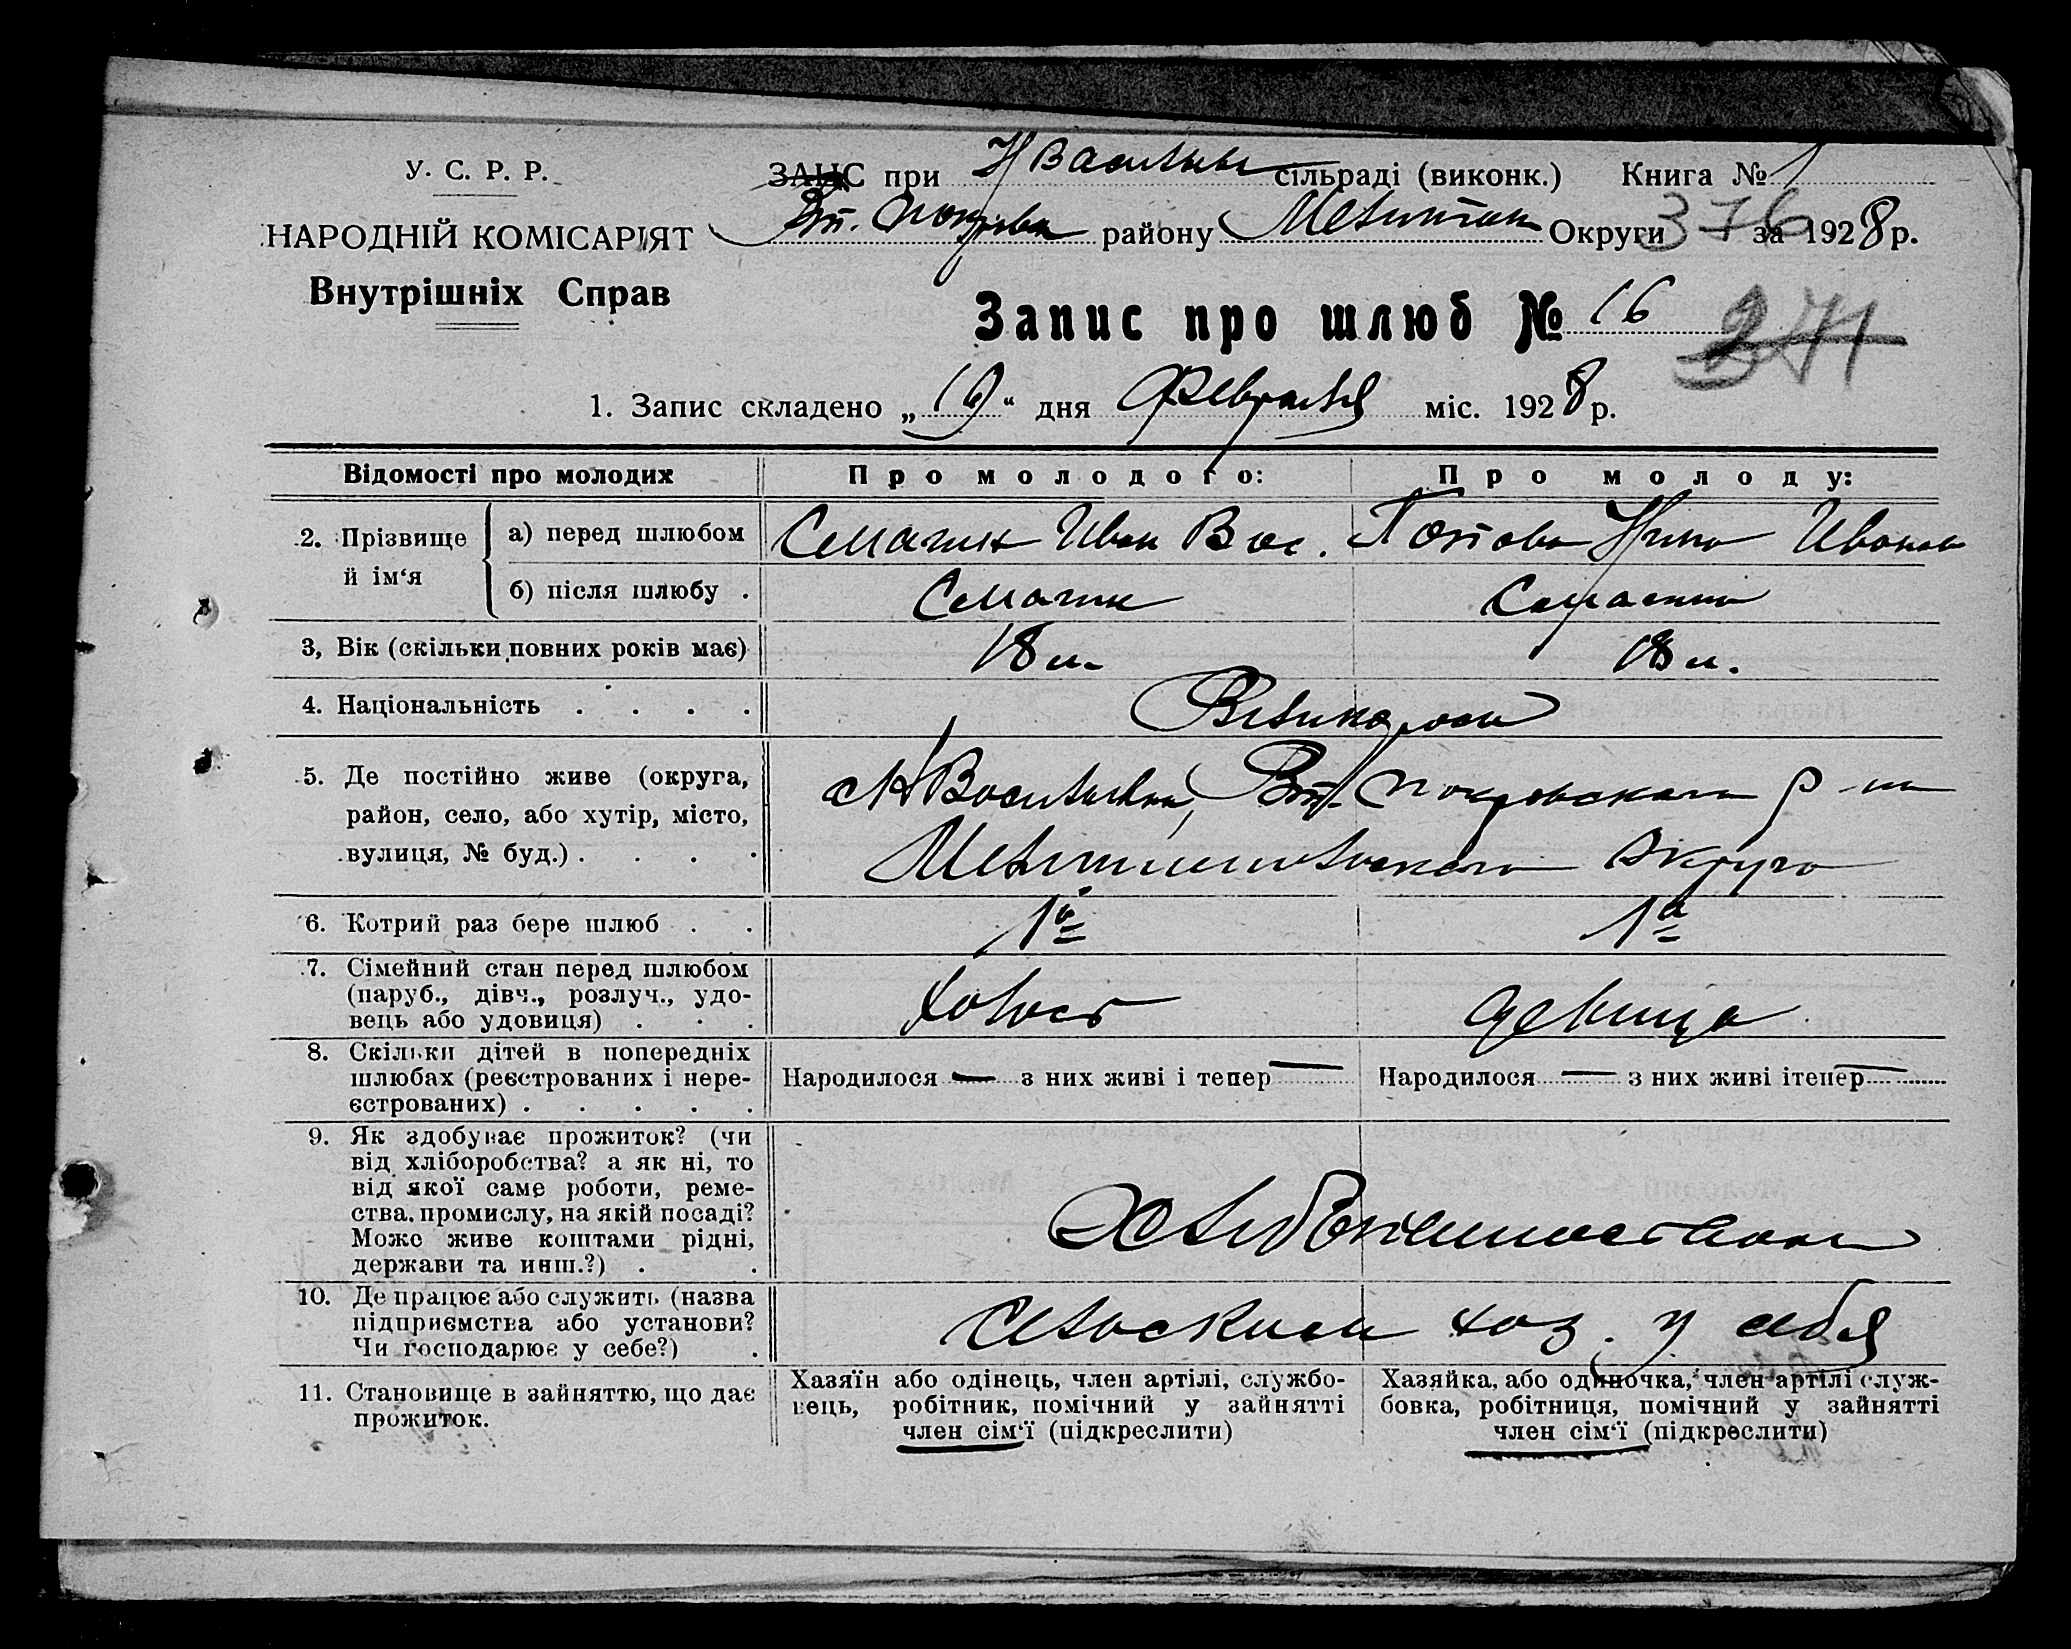 У. С. Р. Р.
НАРОДНІЙ КОМІСАРІЯТ
Внутрішніх Справ
ЗАГС при Н Васильев сільраді (виконк.) Книга № 1
Вт. Покровск району Мелитоп Округи за 1928 р.
376
Запис про шлюб № 16
271
1. Запис складено „19“ дня Февраля міс. 1928 р.
Відомості про молодих Про молодого: Про молоду:
2. Прізвище й ім‘я
а) перед шлюбом Иван Вас. Нина Иванов
б) після шлюбу .
3, Вік (скільки повних років має) 18 л. 18 л.
4. Національність . . . . Великоросы
5. Де постійно живе (округа, район, село, або хутір, місто, вулиця, № буд.) . . . .
с Н Васильевка, Вт. Покровского р-на
Мелитопольского округа
6. Котрий раз бере шлюб . . 1й 1й
7. Сімейний стан перед шлюбом
(паруб., дівч., розлуч., удо-
вець або удовиця) . . . холост девица
8. Скільки дітей в попередніх
шлюбах (реєстрованих і нере-
єстрованих) . . . . .
Народилося — з них живі і тепер — Народилося — з них живі ітепер —
9. Як здобуває прожиток? (чи
від хліборобства? а як ні, то
від якої саме роботи, реме-
ства, промислу, на якій посаді?
Може живе коштами рідні,
держави та инш.?) . .
Хлебопашеством
10. Де працює або служить (назва
підприємства або установи?
Чи господарює у себе?) .
сельским хоз. у себя
11. Становище в зайняттю, що дає
прожиток.
Хазяїн або одінець, член артілі, службо-
вець, робітник, помічний у зайнятті
член сім‘ї (підкреслити)
Хазяйка, або одиночка, член артілі служ-
бовка, робітниця, помічний у зайнятті
член сім‘ї (підкреслити)